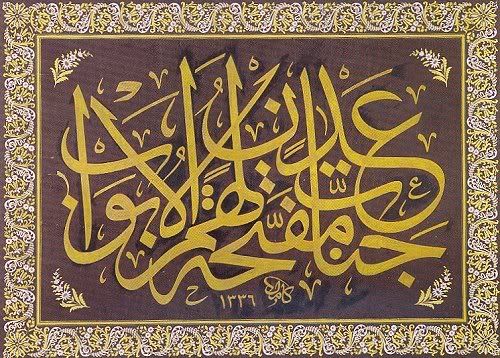 جنات عدن مفتحة لهم الابواب
١٣٣٦